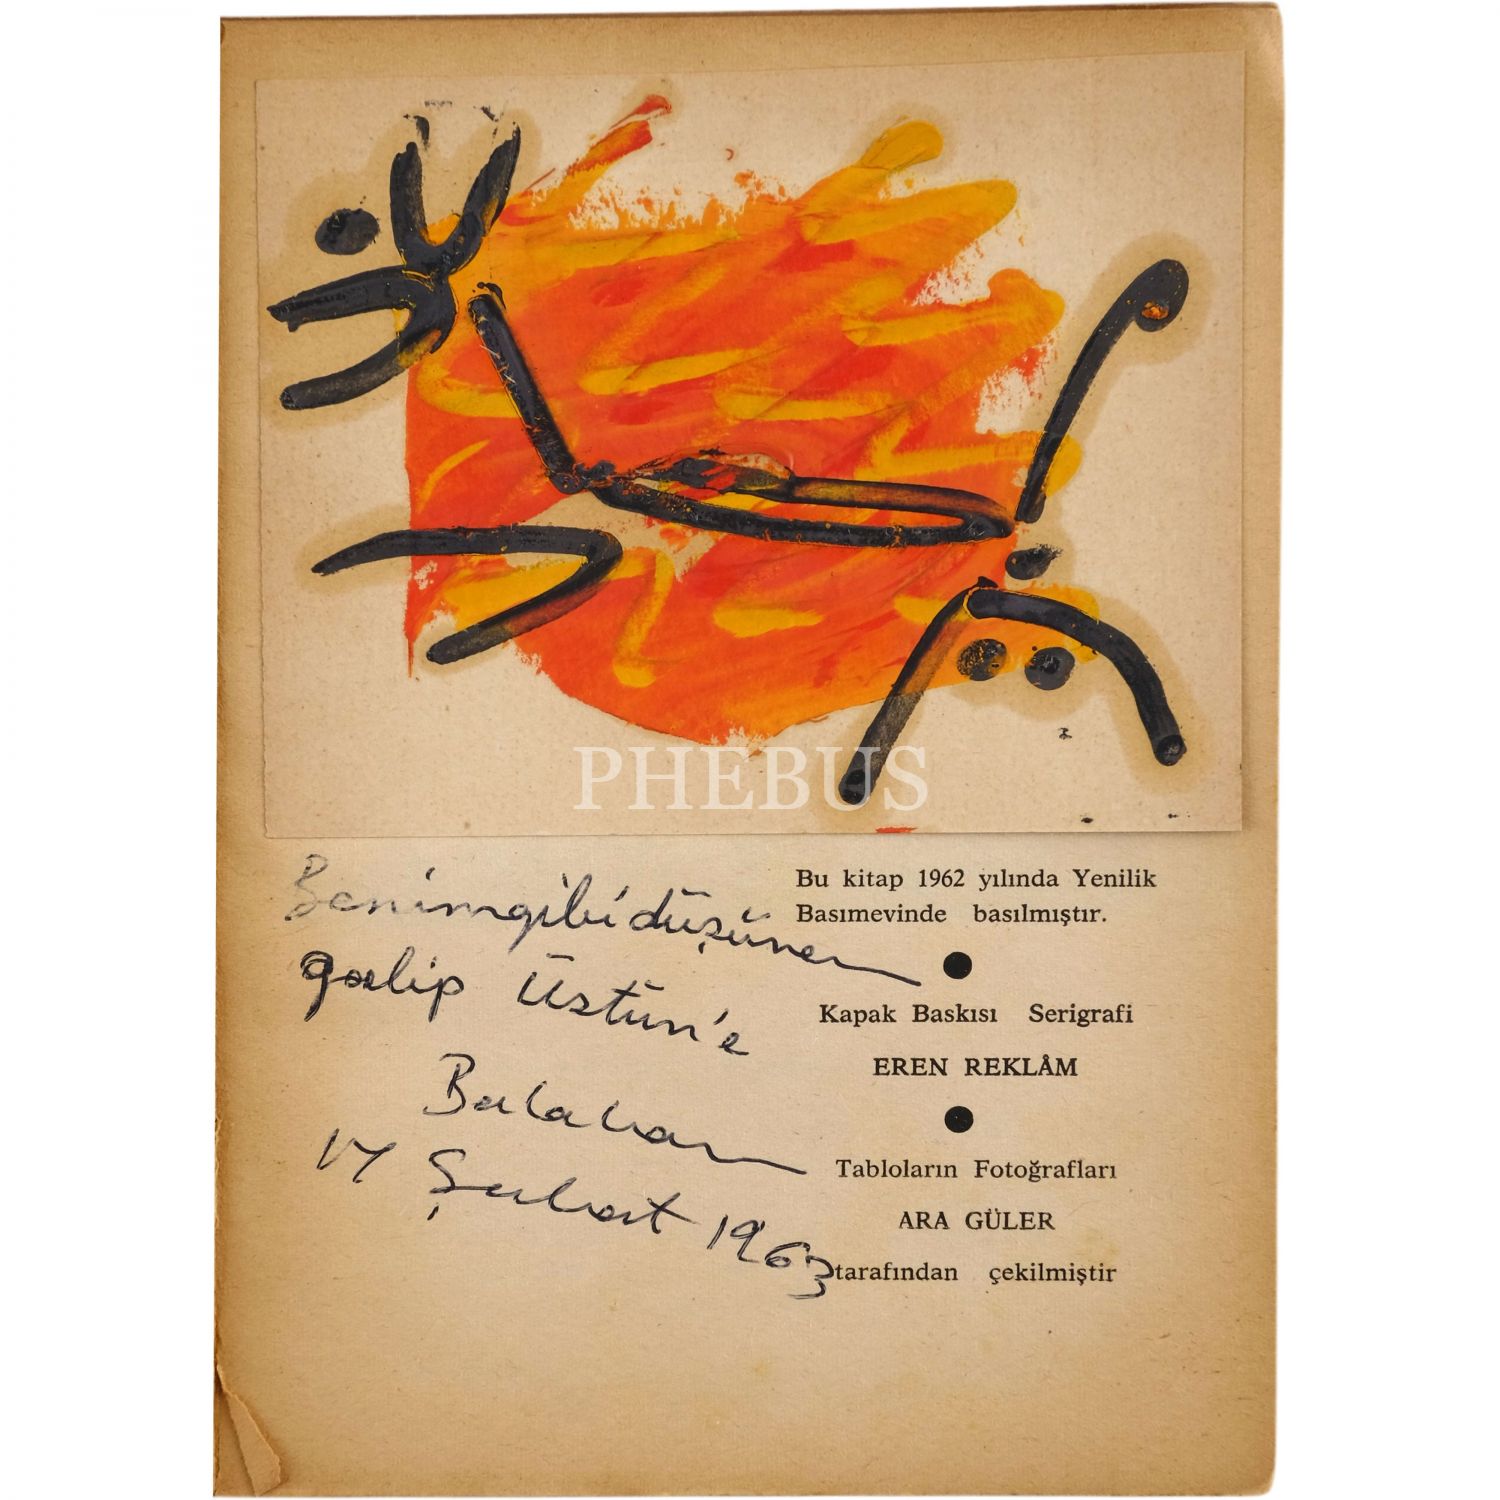 PHEBUS
Benim gibi düşünen
galip Üstün'e
Balaban
14 Şubat 1963
Bu kitap 1962 yılında Yenilik
Basımevinde basılmıştır.
Kapak Baskısı Serigrafi
EREN REKLÂM
Tabloların Fotoğrafları
ARA GÜLER
tarafından çekilmiştir